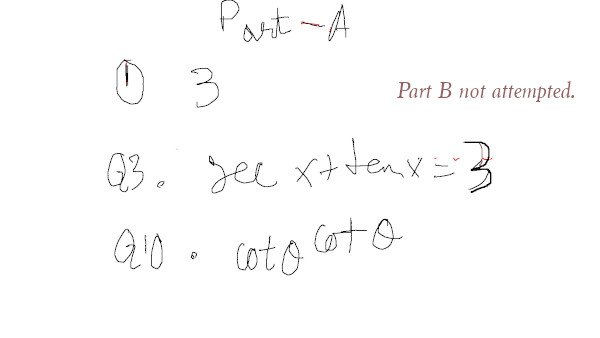 Part - A
① 3
Part B not attempted.
Q3. sec x + tan x = 3
Q10. cot θ cot θ